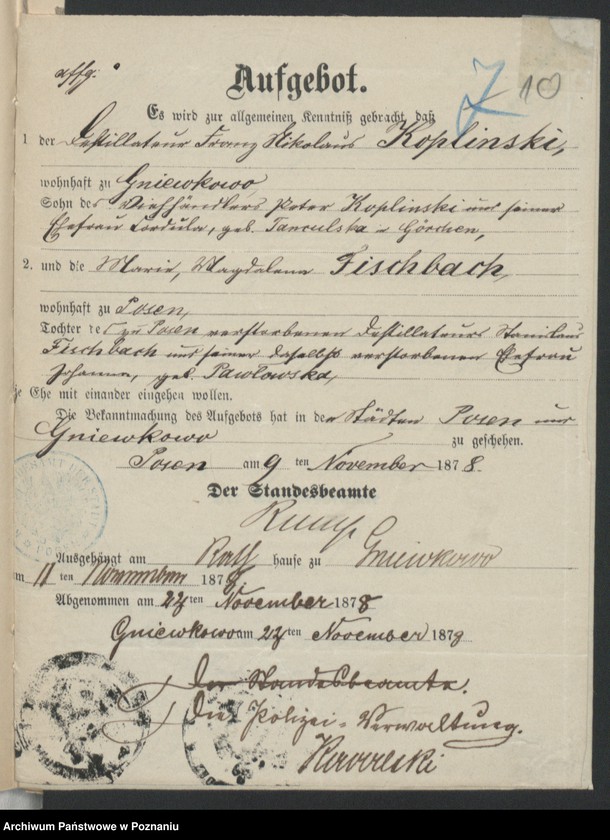 Aufgebot.
10
Es wird zur allgemeinen Kenntniß gebracht, daß
1 der Destillateur Franz Nikolaus Koplinski,
wohnhaft zu Gniewkowo,
Sohn des Viehhändlers Peter Koplinski und seiner
Ehefrau Cordula, geb. Görchen,
2. und die Marie, Magdalena Fischbach,
wohnhaft zu Posen,
Tochter des zu Posen verstorbenen Destillateurs Stanislaus
Fischbach und seiner daselbst verstorbenen Ehefrau
Johanna, geb. Pawlowska,
die Ehe mit einander eingehen wollen.
Die Bekanntmachung des Aufgebots hat in den Städten Posen und
Gniewkowo zu geschehen.
Posen am 9 ten November 1878.
Der Standesbeamte
Ausgehängt am Rath hause zu Gniewkowo
am 11 ten November 1878.
Abgenommen am ten November 1878
Gniewkowo am ten November 1878
Der Standesbeamte.
Die Polizei-Verwaltung.
Archiwum Państwowe w Poznaniu